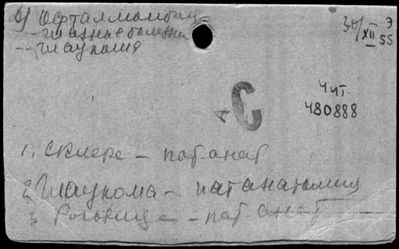 Офтальмолог
-- глазные болезни
-- глаукома
30/XII 55
Э
Чит.
480888
С
1. Склере - пат анат
2 Глаукома - пат анатомия
3 Роговице - пат анат